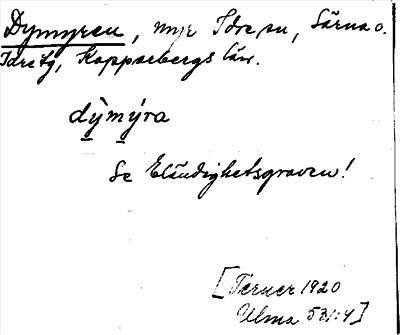 Dymyren, myr Idre sn, Särna o.
Idre tg, Kopparbergs län.
dỳ̱mý̱ra
Se Eländighetsgraven!
[Terner 1920
Ulma 531:4]